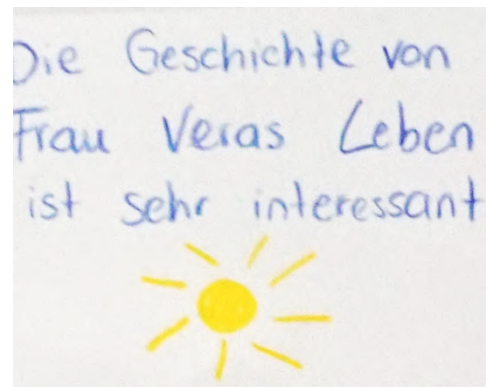 Die Geschichte von
Frau Veras Leben
ist sehr interessant